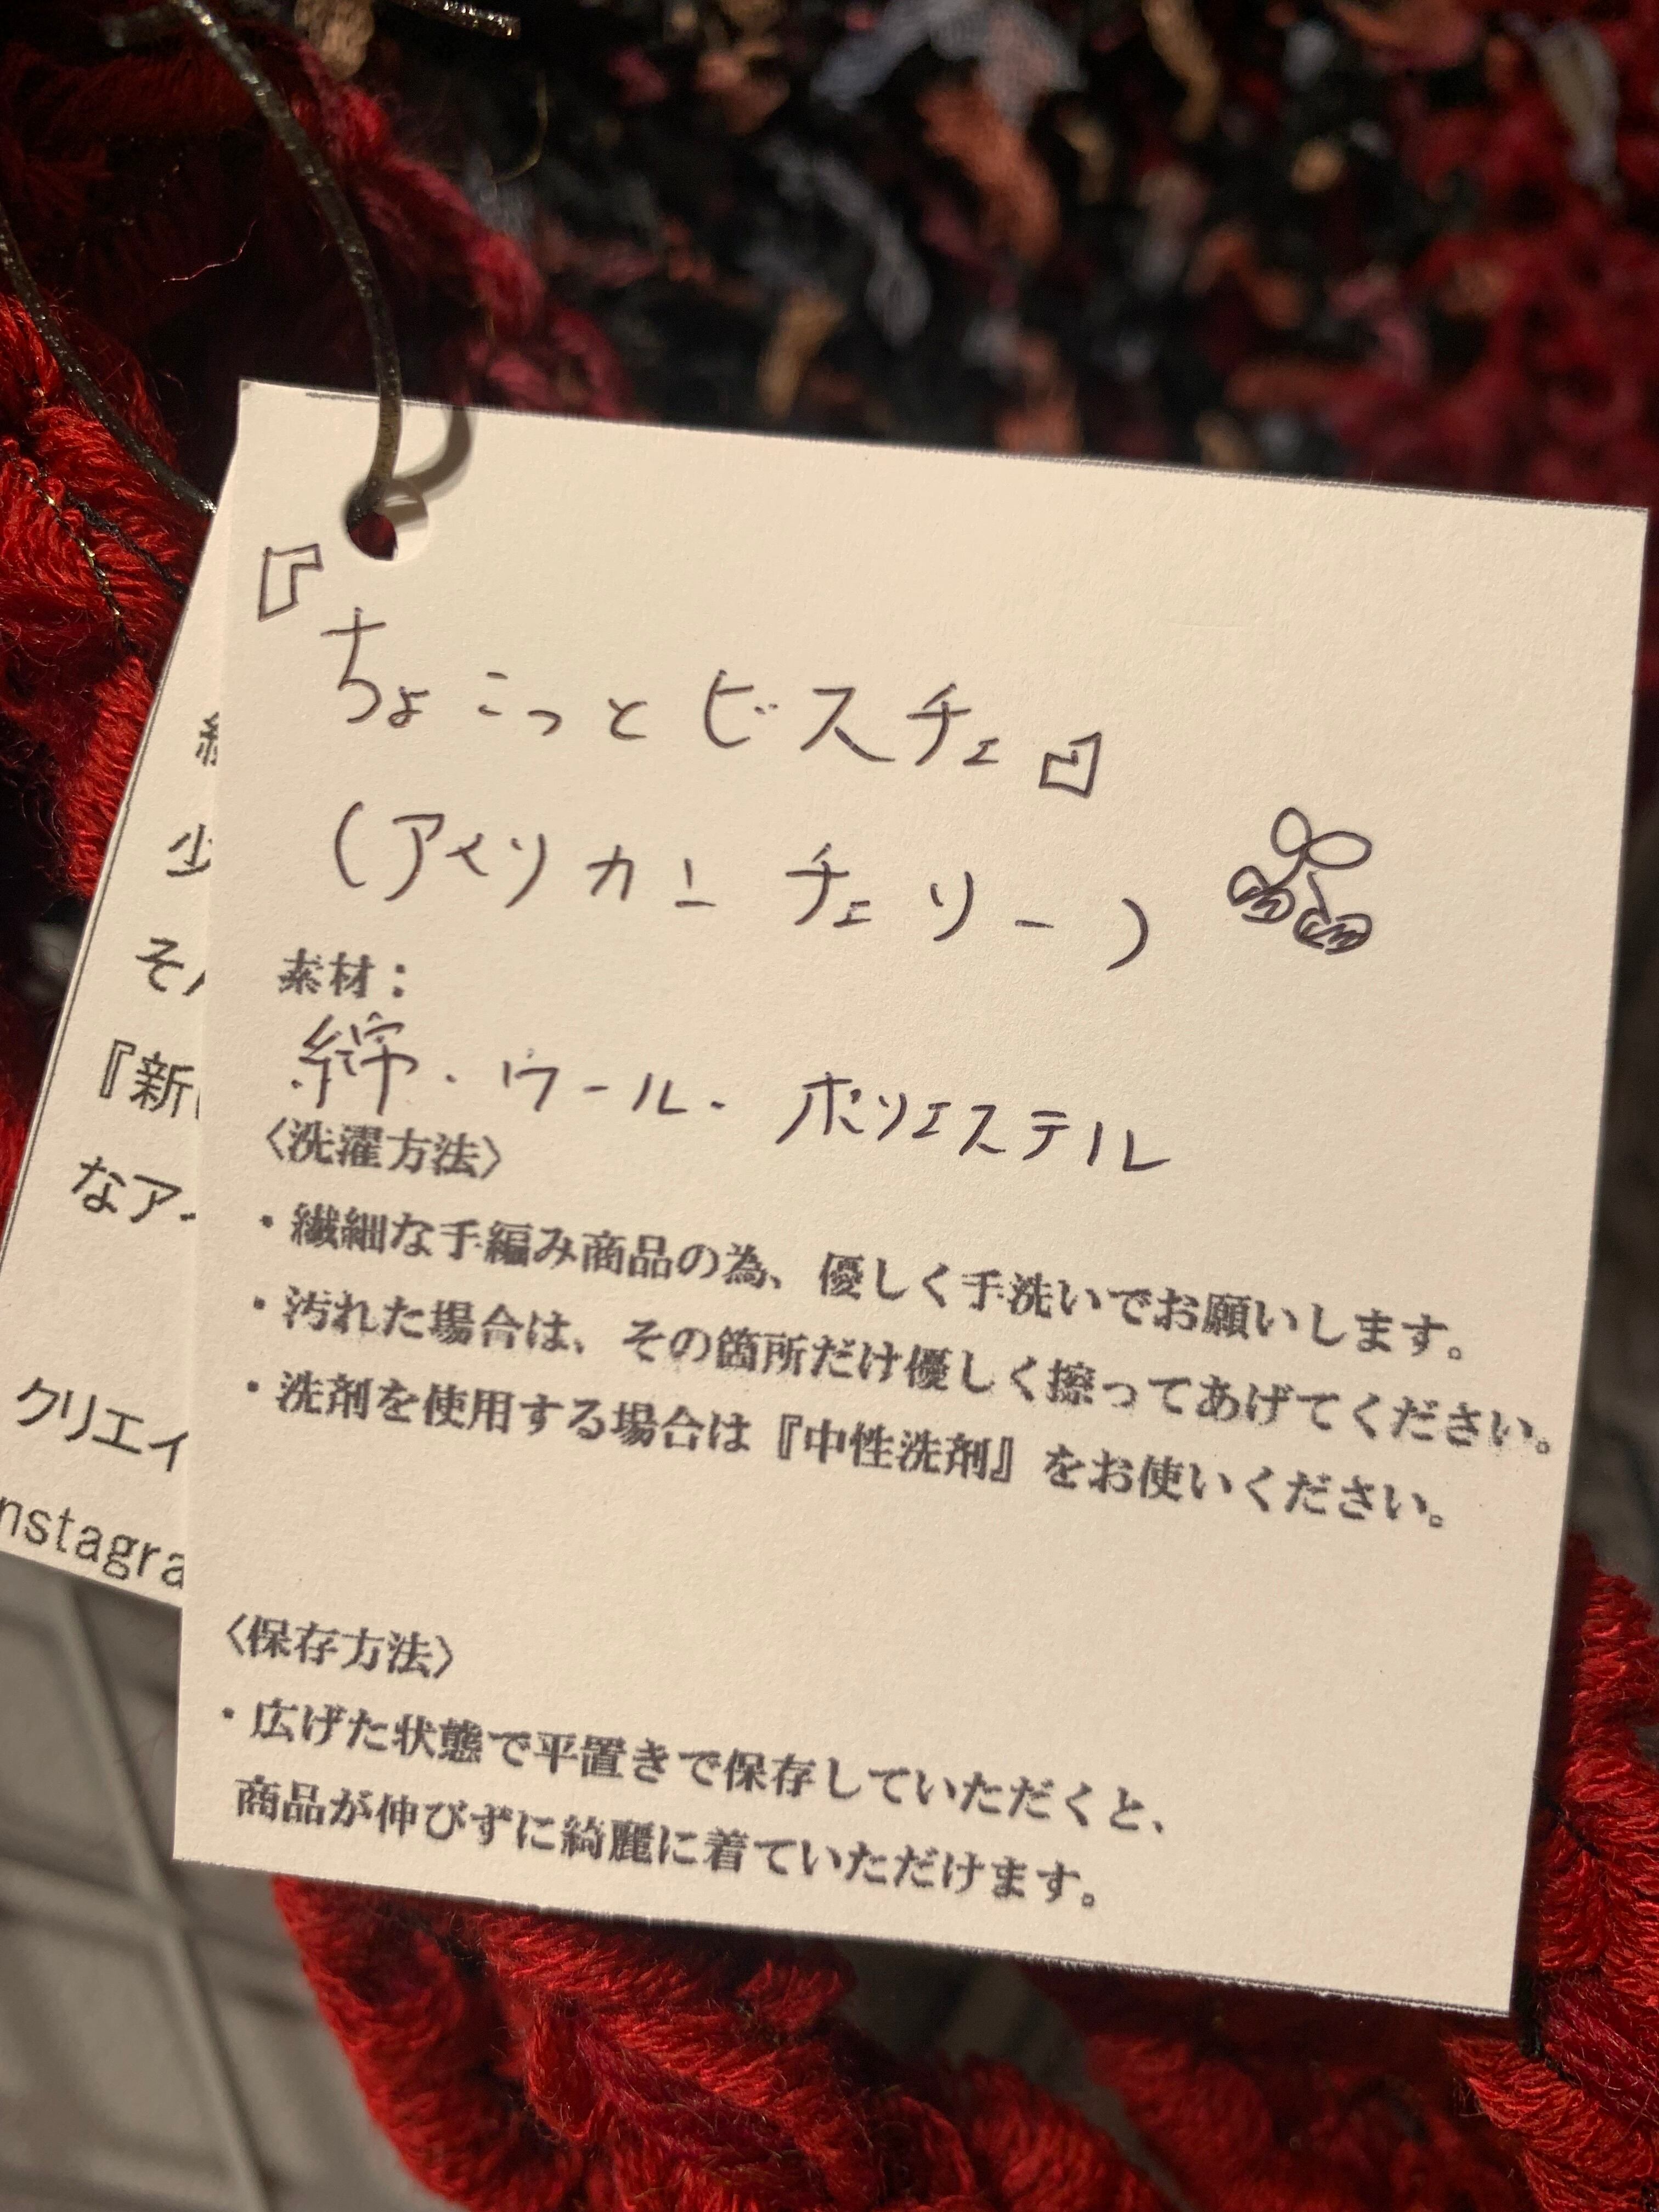 『ちょこっとビスチェ』
(アメリカンチェリー)
素材：
綿・ウール・ポリエステル
〈洗濯方法〉
・繊細な手編み商品の為、優しく手洗いでお願いします。
・汚れた場合は、その箇所だけ優しく擦ってあげてください。
・洗剤を使用する場合は『中性洗剤』をお使いください。
〈保存方法〉
・広げた状態で平置きで保存していただくと、
商品が伸びずに綺麗に着ていただけます。
少
そ
『新
なア
クリエイ
nstagra